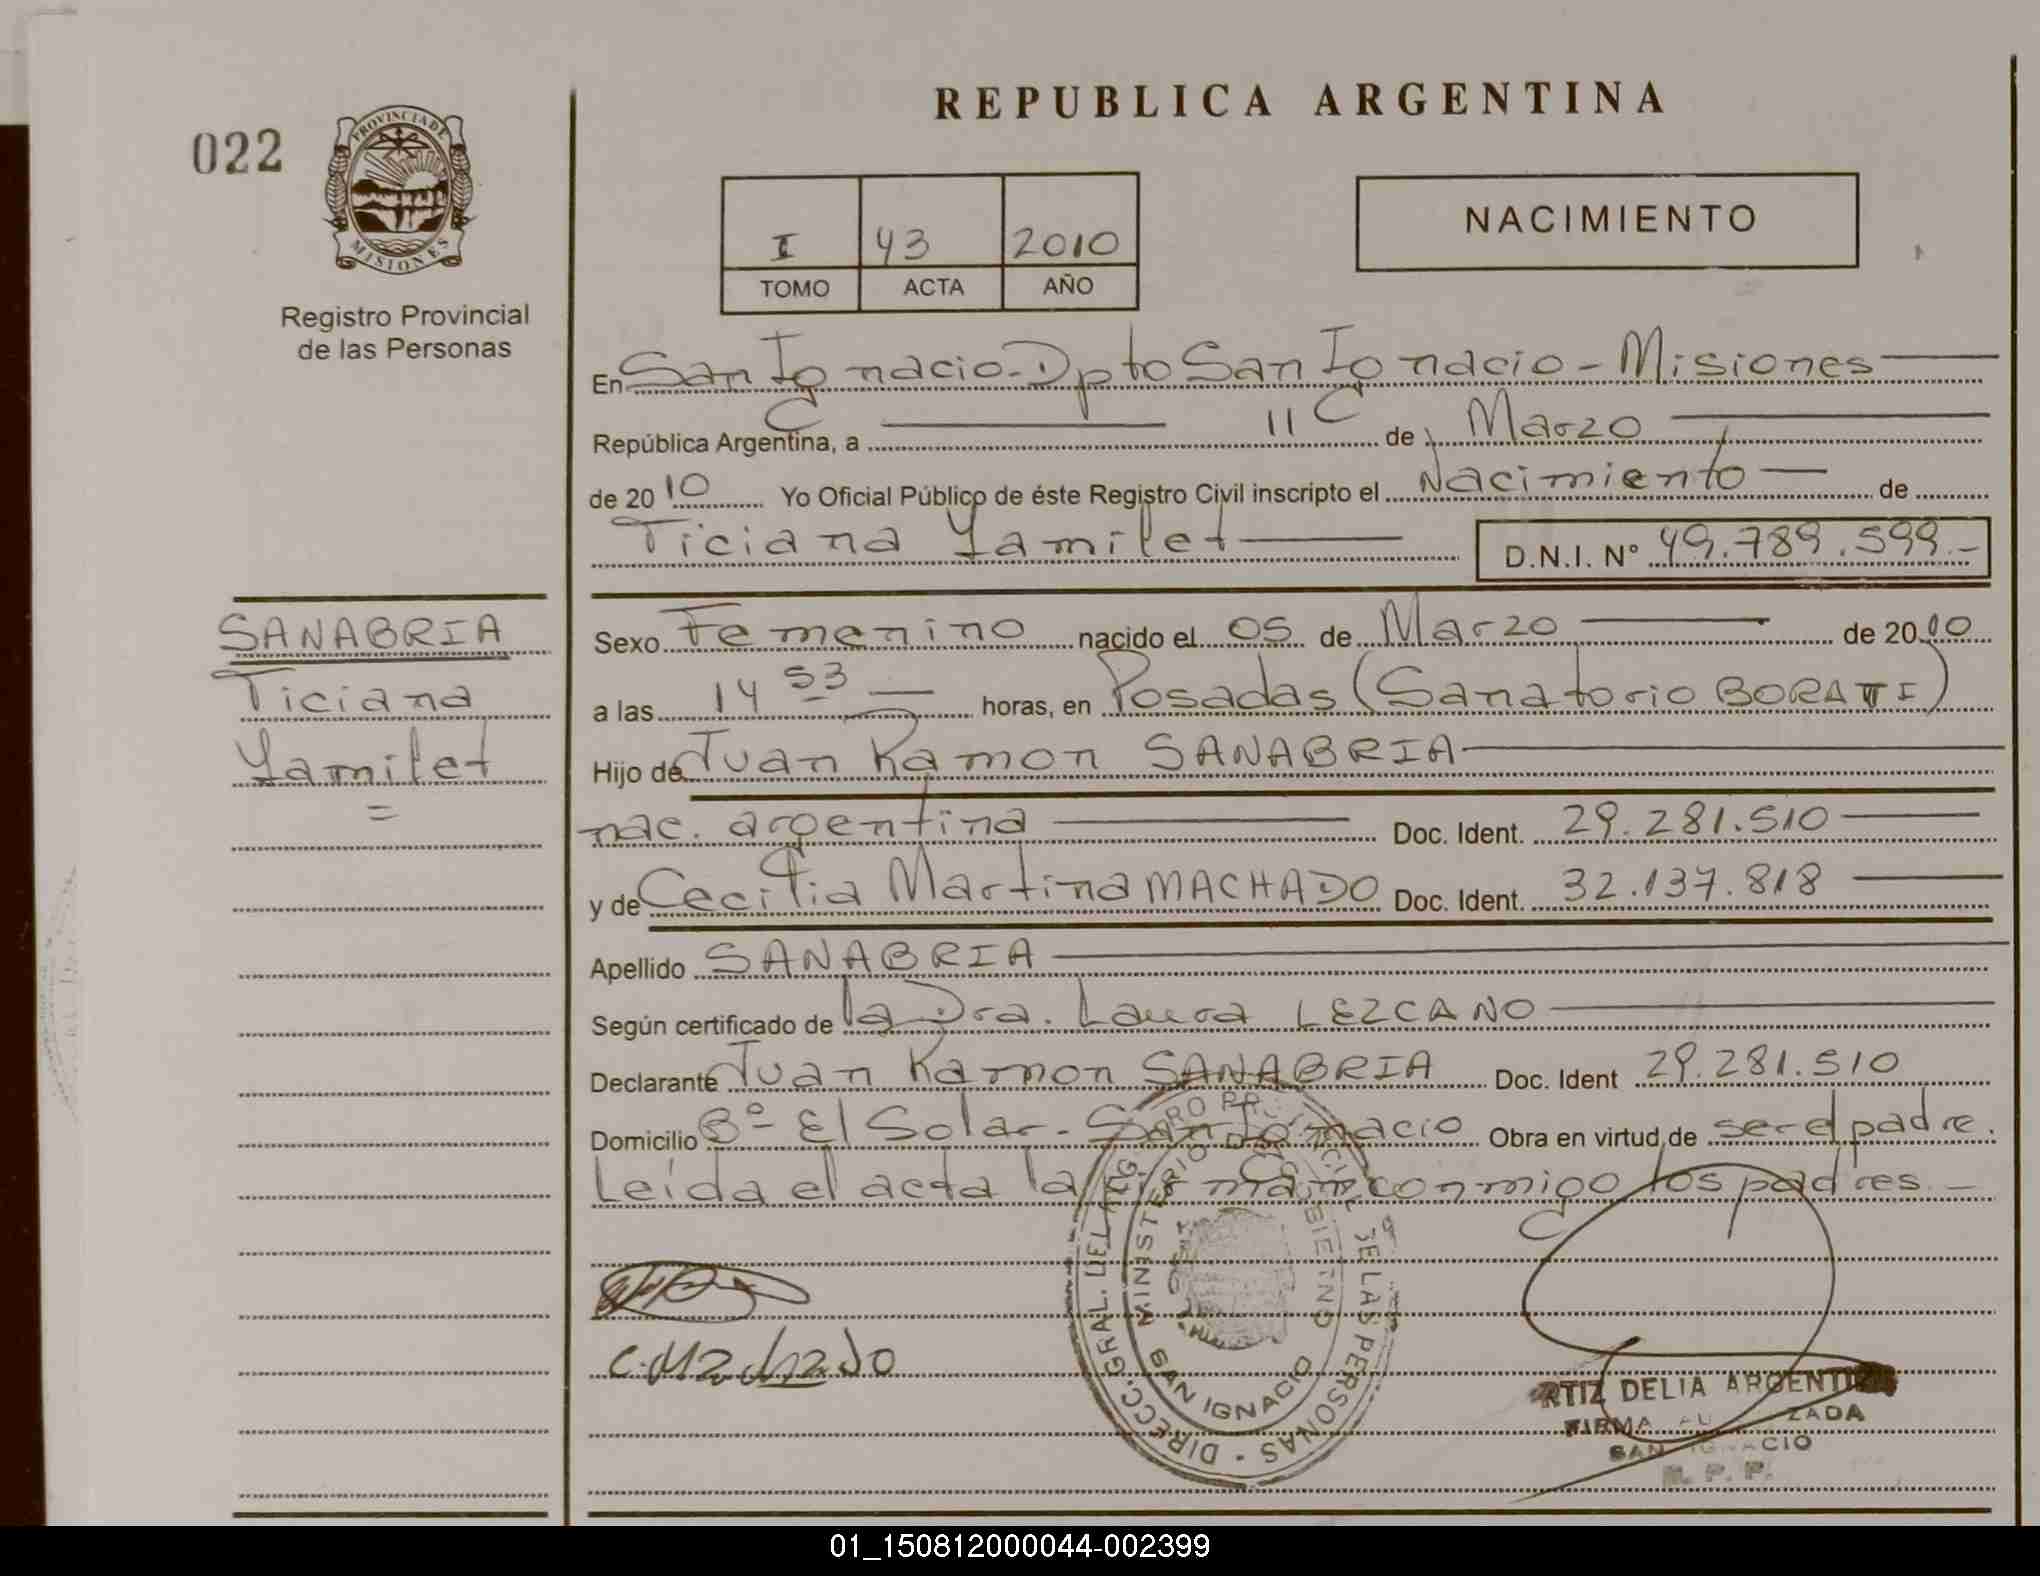 REPUBLICA ARGENTINA
022
PROVINCIA DE
MISIONES
Registro Provincial
de las Personas
I 43 2010
TOMO ACTA AÑO
NACIMIENTO
En San Ignacio - Dpto San Ignacio - Misiones
República Argentina, a 11 de Marzo
de 2010 Yo Oficial Público de éste Registro Civil inscripto el Nacimiento de
Ticiana Yamilet D.N.I. N° 49.789.599.-
SANABRIA
Ticiana
Yamilet
=
Sexo Femenino nacido el 05 de Marzo de 2010
a las 14 53 horas, en Posadas (Sanatorio BORATTI)
Hijo de Juan Ramon SANABRIA
nac. argentina Doc. Ident. 29.281.510
y de Cecilia Martina MACHADO Doc. Ident. 32.137.818
Apellido SANABRIA
Según certificado de la Dra. Laura LEZCANO
Declarante Juan Ramon SANABRIA Doc. Ident 29.281.510
Domicilio Bº El Solar - San Ignacio Obra en virtud de ser el padre.
Leída el acta la firman conmigo los padres. -
C. Machado
DIRECC. GRAL. DEL REG PROVINCIAL DE LAS PERSONAS
MINISTERIO GOBIERNO
SAN IGNACIO
RTIZ DELIA ARGENTI
FIRMA AU ZADA
SAN IGNACIO
R. P. P.
01_150812000044-002399